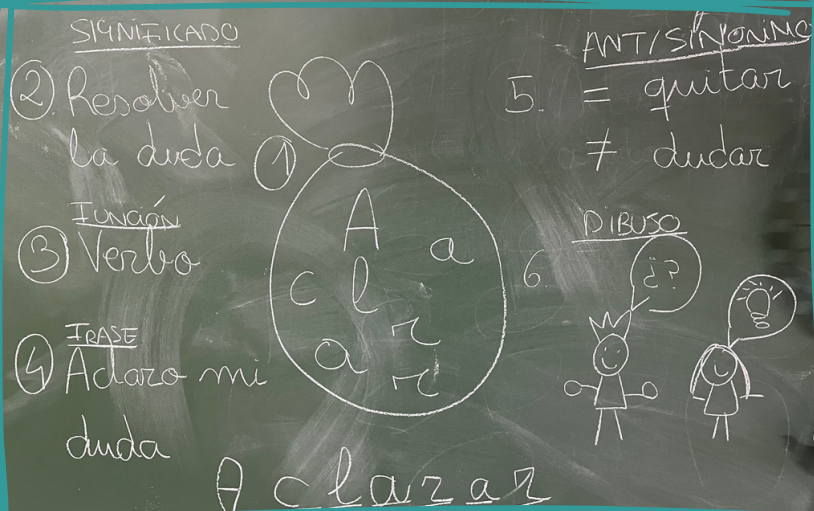 SIGNIFICADO
2. Resolver
la duda
1
A
a
c l
r
a r
FUNCIÓN
3 Verbo
FRASE
4 Aclaro mi
duda
ANT/SINÓNIMO
5. = quitar
≠ dudar
DIBUJO
6.
¿?
Aclarar